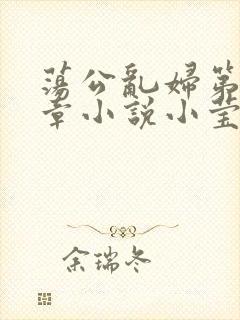 蕩公亂婦第
章小說小莹
余瑞冬